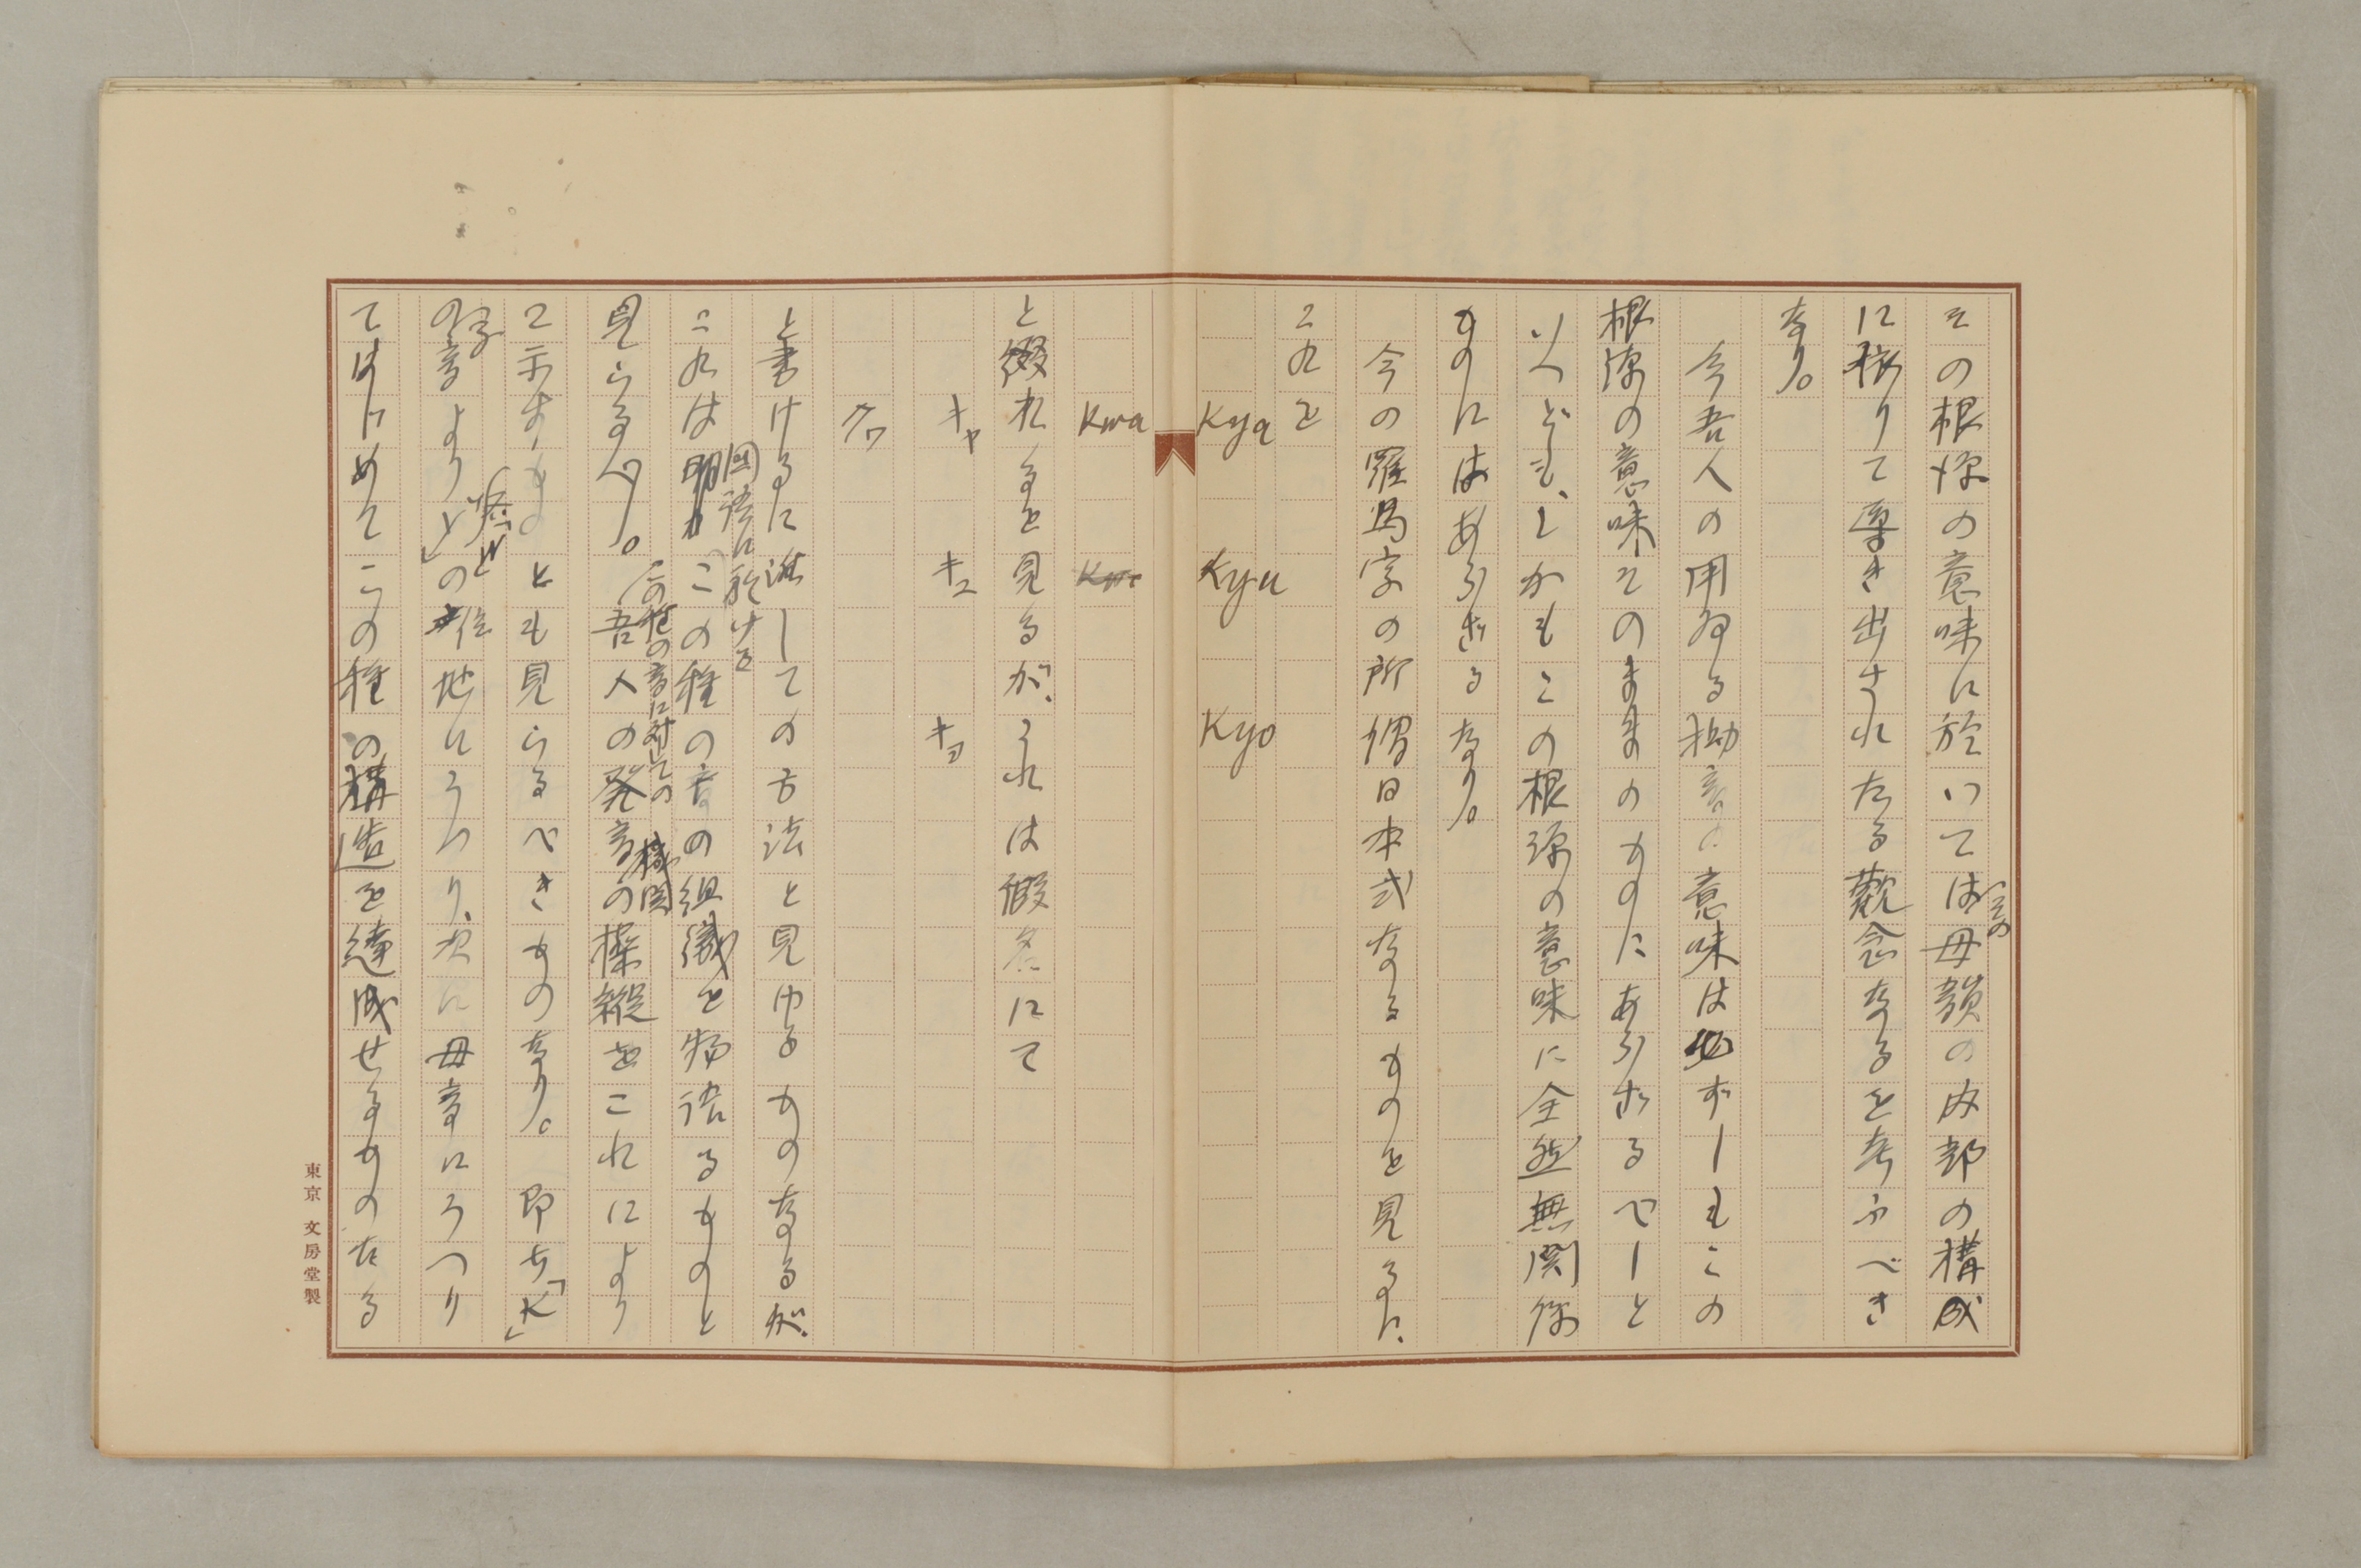 その根源の意味に於いてはその母韻の内部の構成
に依りて導き出されたる觀念なるを考ふべき
なり。
今吾人の用ゐる拗音の意味は必ずしもこの
根源の意味そのままのものにあらざるべしと
いへども、しかもこの根源の意味に全然無関係
ものにはあらざるなり。
今の羅馬字の所謂日本式なるものを見るに、
これを
Kya Kyu Kyo
Kwa
と綴れるを見るが、これは假名にて
キャ キュ キョ
クヮ
と書けるに準じての方法と見ゆるものなるが、
これは明かに國語に於けるこの種の音の組織を物語るものと
見らるべし。この種の音に対しての吾人の発音機関の操縦をこれにより
て示すものとも見らるべきものなり。即ち「K」
の子音より「や」の位地にうつり、次に母音にうつり
てはじめてこの種の構造を達成せるものたる
東京 文房堂製